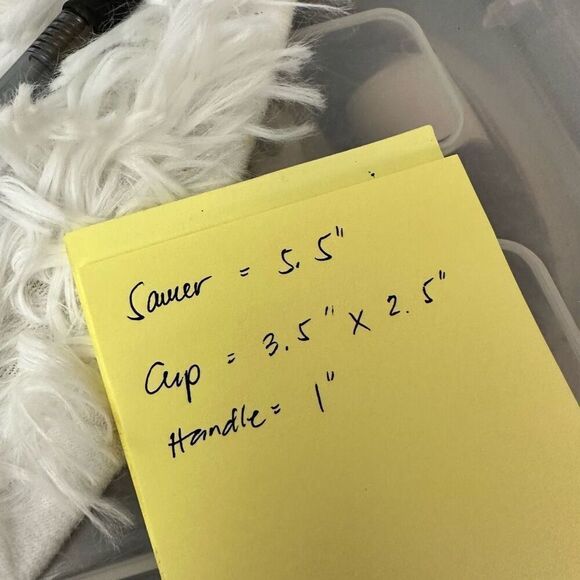 Saucer = 5.5"
Cup = 3.5" X 2.5"
Handle = 1"